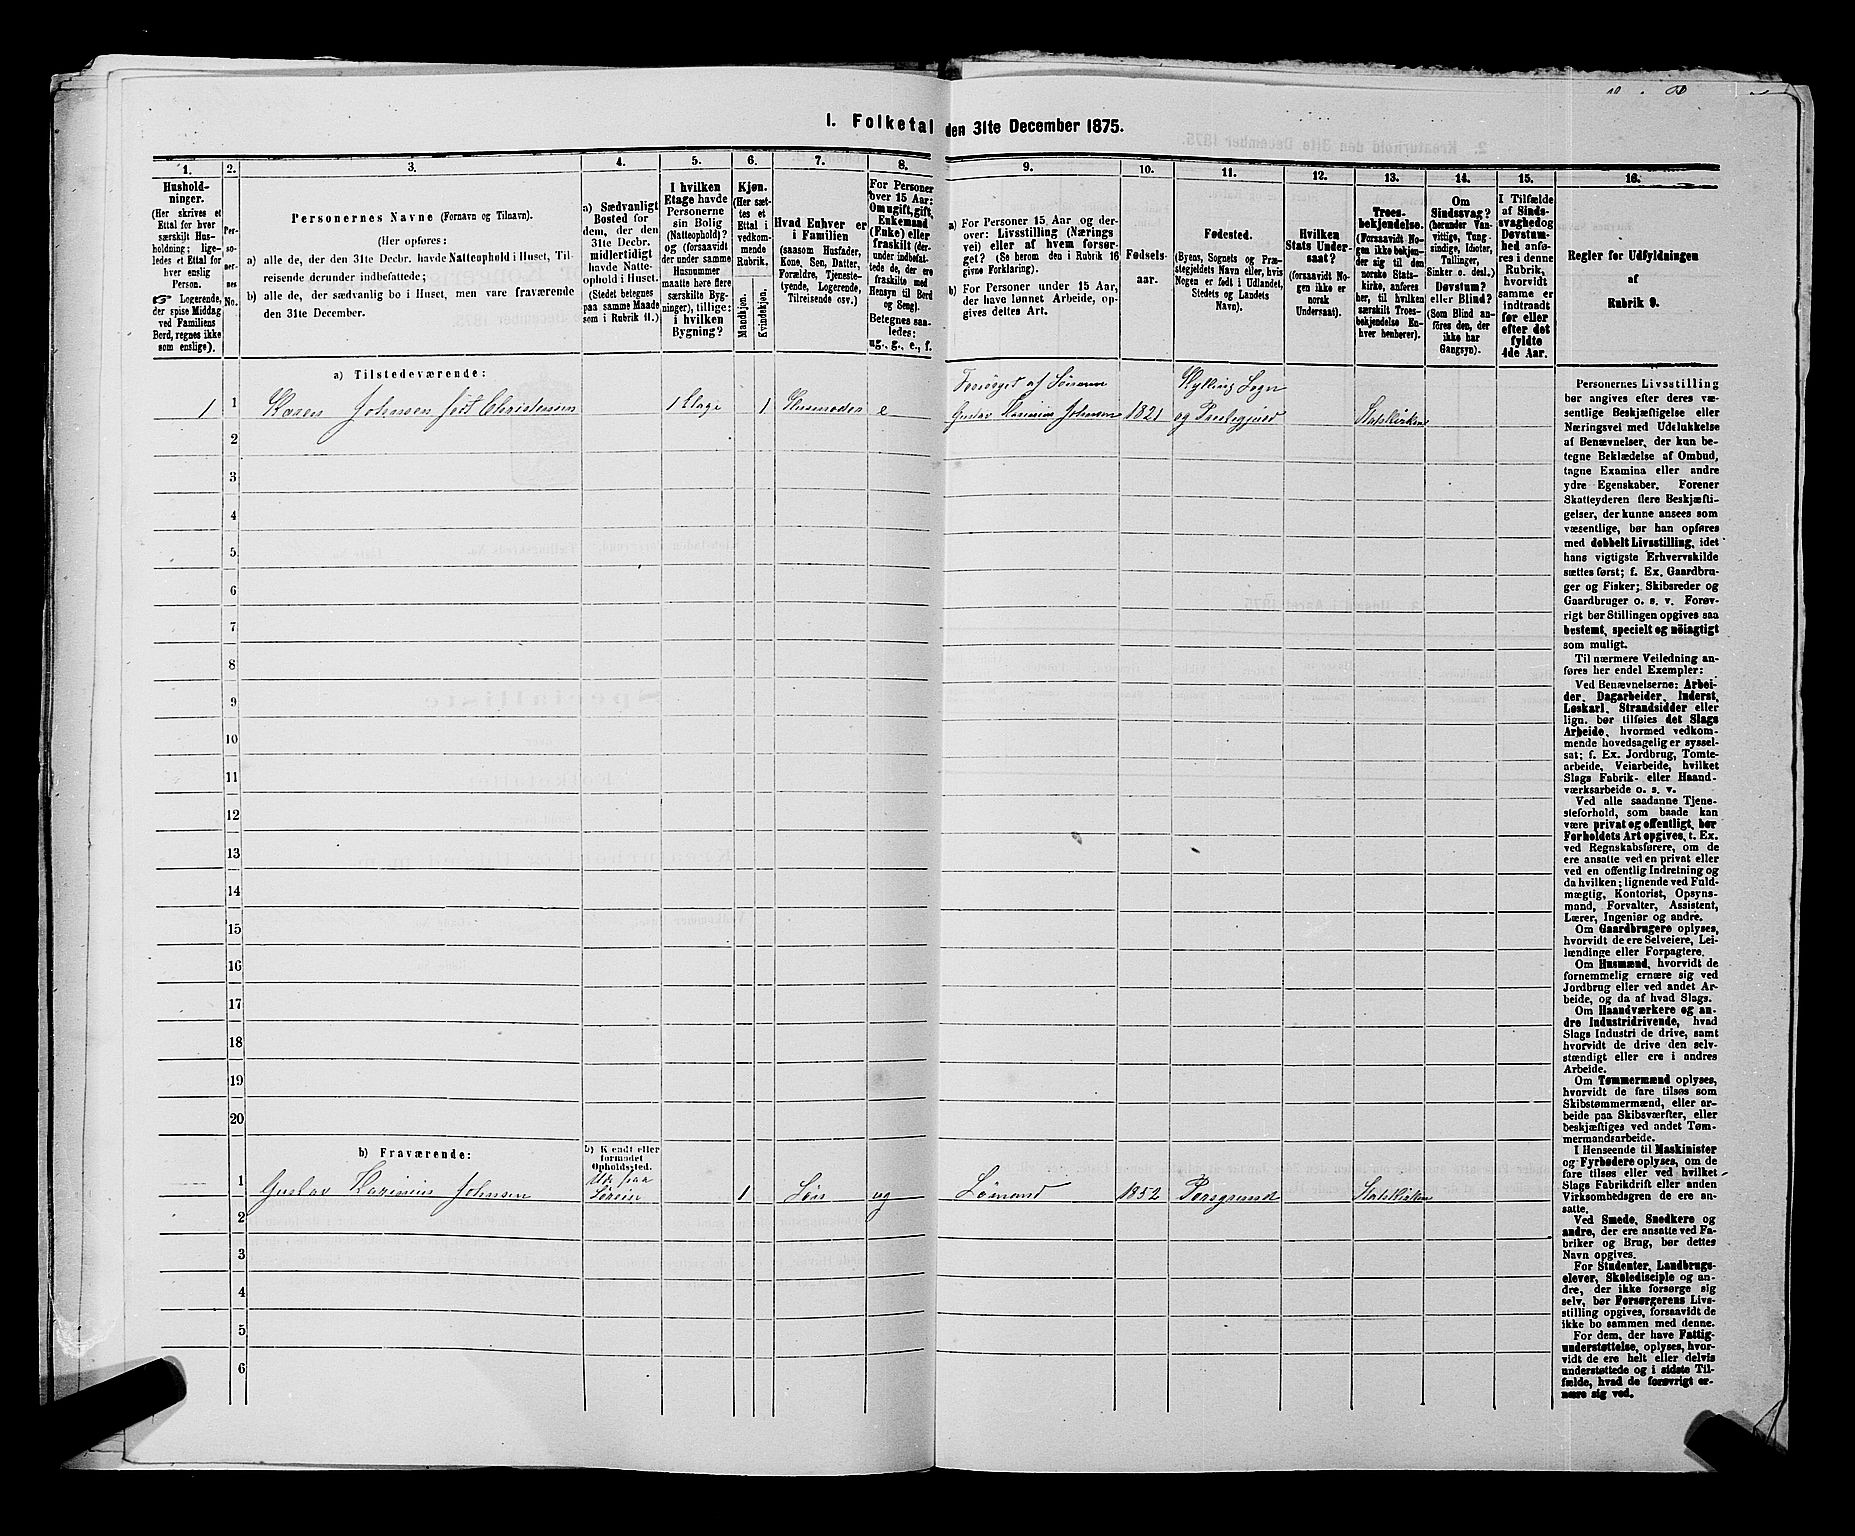 I. Folketal den 31te December 1875.
1.
Hushold-
ninger.
(Her skrives et
Ettal for hver
særskilt Hus-
holdning; lige-
ledes et Ettal for
hver enslig
Person.
☞ Logerende,
der spise Middag
ved Familiens
Bord, regnes ikke
som enslige).
2.
Per-
so-
ner-
nes
No.
3.
Personernes Navne (Fornavn og Tilnavn).
(Her opføres:
a) alle de, der den 31te Decbr. havde Natteophold i Huset, Til-
reisende derunder indbefattede;
b) alle de, der sædvanlig bo i Huset, men vare fraværende
den 31te December.
4.
a) Sædvanligt
Bosted for
dem, der den
31te Decbr.
midlertidigt
havde Natte-
ophold i Huset.
(Stedet betegnes
paa samme Maade
som i Rubrik 11.)
5.
I hvilken
Etage havde
Personerne
sin Bolig
(Natteophold)?
og (forsaavidt
der under samme
Husnummer
maatte høre flere
særskilte Byg-
ninger), tillige:
i hvilken
Bygning?
6.
Kjøn.
(Her sæt-
tes et
Ettal i
vedkom-
mende
Rubrik.
Mandkjøn.
Kvindekjøn.
7.
Hvad Enhver er
i Familien
(saasom Husfader,
Kone, Søn, Datter,
Forældre, Tjeneste-
tyende, Logerende,
Tilreisende osv.)
8.
For Personer
over 15 Aar:
Om ugift, gift,
Enkemand
(Enke) eller
fraskilt (der-
under indbefat-
tede de, der ere
fraskilte med
Hensyn til Bord
og Seng).
Betegnes saa-
ledes:
ug., g., e., f.
9.
a) For Personer 15 Aar og der-
over: Livsstilling (Nærings
vei) eller af hvem forsør-
get? (Se herom den i Rubrik 16
givne Forklaring).
b) For Personer under 15 Aar,
der have lønnet Arbeide, op-
gives dettes Art.
10.
Fødsels-
aar.
11.
Fødested.
(Byens, Sognets og Præ-
stegjeldets Navn eller, hvis
Nogen er født i Udlandet,
Stedets og Landets
Navn).
12.
Hvilken
Stats Under-
saat?
(forsaavidt No-
gen ikke er
norsk
Undersaat).
13.
Troes-
bekjendelse.
(Forsaavidt No-
gen ikke bekjen-
der sig til den
norske Stats-
kirke, anføres
her, til hvilken
særskilt Troes-
bekjendelse En-
hver henhører).
14.
Om
Sindssvag?
(herunder Van-
vittige, Tung-
sindige, Idioter,
Tullinger,
Sinker o. desl.)
Døvstum?
eller Blind?
(Som Blind an-
føres den, der
ikke har
Gangsyn).
15.
I Tilfælde
af Sinds-
svaghed og
Døvstum-
hed anfø-
res i denne
Rubrik,
hvorvidt
samme er
indtraadt
før eller
efter det
fyldte
4de Aar.
16.
Regler for Udfyldningen
af
Rubrik 9.
a) Tilstedeværende:
1 1 Karen Johnsen født Christensen 1 Etage 1 Husmoder e Forsørget af Sønnen Gustav Johnsen 1821 Sogn og Præstegjeld Statskirken
2
3
4
5
6
7
8
9
10
11
12
13
14
15
16
17
18
19
20
b) Fraværende:
b) Kjendt eller
formodet
Opholdssted.
1 Gustav Johnsen Ude paa Søreise 1 Søn ug Sømand 1852 Porsgrund Statskirken
2
3
4
5
6
Personernes Livsstilling
bør angives efter deres væ-
sentlige Beskjæftigelse eller
Næringsvei med Udelukkelse
af Benævnelser, der kun be-
tegne Beklædelse af Ombud,
tagne Examina eller andre
ydre Egenskaber. Forener
Skatteyderen flere Beskjæfti-
gelser, der kunne ansees som
væsentlige, bør han opføres
med dobbelt Livsstilling, idet
hans vigtigste Erhvervskilde
sættes først; f. Ex. Gaardbru-
ger og Fisker; Skibsreder og
Gaardbruger o. s. v. Forøv-
rigt bør Stillingen opgives saa
bestemt, specielt og nöiagtigt
som muligt.
Til nærmere Veiledning an-
føres her endel Exempler:
Ved Benævnelserne: Arbei-
der, Dagarbeider, Inderst,
Løskarl, Strandsidder eller
lign. bør tilføies det Slags
Arbeide, hvormed vedkom-
mende hovedsagelig er syssel-
sat; f. Ex. Jordbrug, Tomte-
arbeide, Veiarbeide, hvilket
Slags Fabrik- eller Haand-
værksarbeide o. s. v.
Ved alle saadanne Tjene-
steforhold, som baade kan
være privat og offentligt, bør
Forholdets Art opgives, t. Ex.
ved Regnskabsførere, om de
ere ansatte ved en privat eller
ved en offentlig Indretning og
da hvilken; lignende ved Fuld-
mægtig, Kontorist, Opsyns-
mand, Forvalter, Assistent,
Lærer, Ingeniør og andre.
Om Gaardbrugere oplyses,
hvorvidt de ere Selveiere, Lei-
lændinge eller Forpagtere.
Om Husmænd, hvorvidt de
fornemmelig ernære sig ved
Jordbrug eller ved andet Ar-
beide, og da af hvad Slags.
Om Haandværkere og an-
dre Industridrivende, hvad
Slags Industri de drive, samt
hvorvidt de drive den selv-
stændigt eller ere i andres
Arbeide.
Om Tømmermænd oplyses,
hvorvidt de fare tilsøs som
Skibstømmermænd, eller ar-
beide paa Skibsværfter, eller
beskjæftiges ved andet Tøm-
mermandsarbeide.
I Henseende til Maskinister
og Fyrbødere oplyses, om de
fare tilsøs eller ved hvilket
Slags Fabrikdrift eller anden
Virksomhedsgren de ere an-
satte.
Ved Smede, Snedkere og
andre, der ere ansatte ved Fa-
briker og Brug, bør dettes
Navn opgives.
For Studenter, Landbrugs-
elever, Skoledisciple og an-
dre, der ikke forsørge sig
selv, bør Forsørgerens Livs-
stilling opgives, forsaavidt de
ikke bo sammen med denne.
For dem, der have Fattig-
understøttelse, oplyses, hvor-
vidt de ere helt eller delvis
understøttede og i sidste Til-
fælde, hvad de forøvrigt er-
nære sig ved.